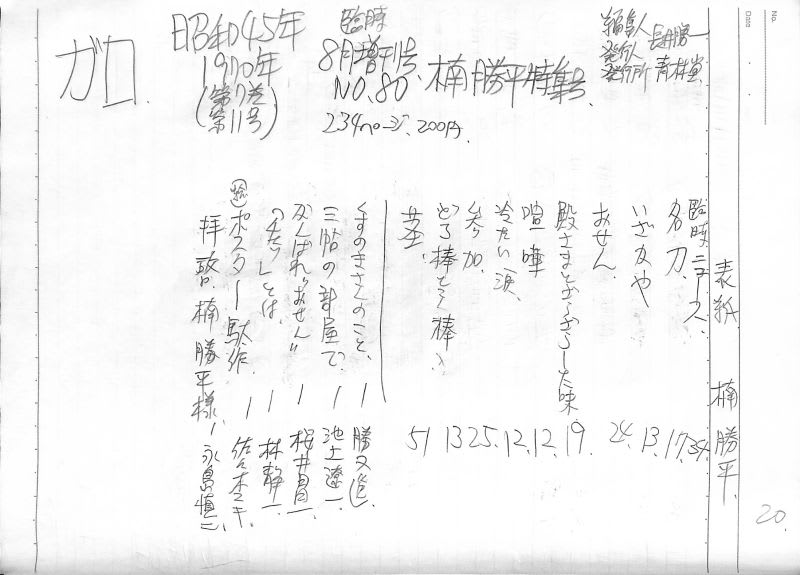 No.
Date
ガロ
昭和45年
1970年
(第7巻
第11号)
臨時
8月増刊号
NO.80.
楠勝平特集号
234ページ. 200円.
編集人
発行人 長井勝一
発行所 青林堂
表紙 楠勝平.
臨時ニュース. 34.
名刀 17.
いざかや 13.
おせん. 24.
殿さまとざらざらした味 19.
喧嘩 12.
冷たい涙. 12.
参加. 25.
どろ棒とどろ棒 13
茎. 51
くすのきさんのこと、 1 勝又進
三帖の部屋で 1 池上遼一
がんばれ!おせん!! 1 桜井昌一
とは、 1 林静一
ポスター駄作. 1 佐々木マキ.
拝啓、楠勝平様. 1 永島慎二.
20.